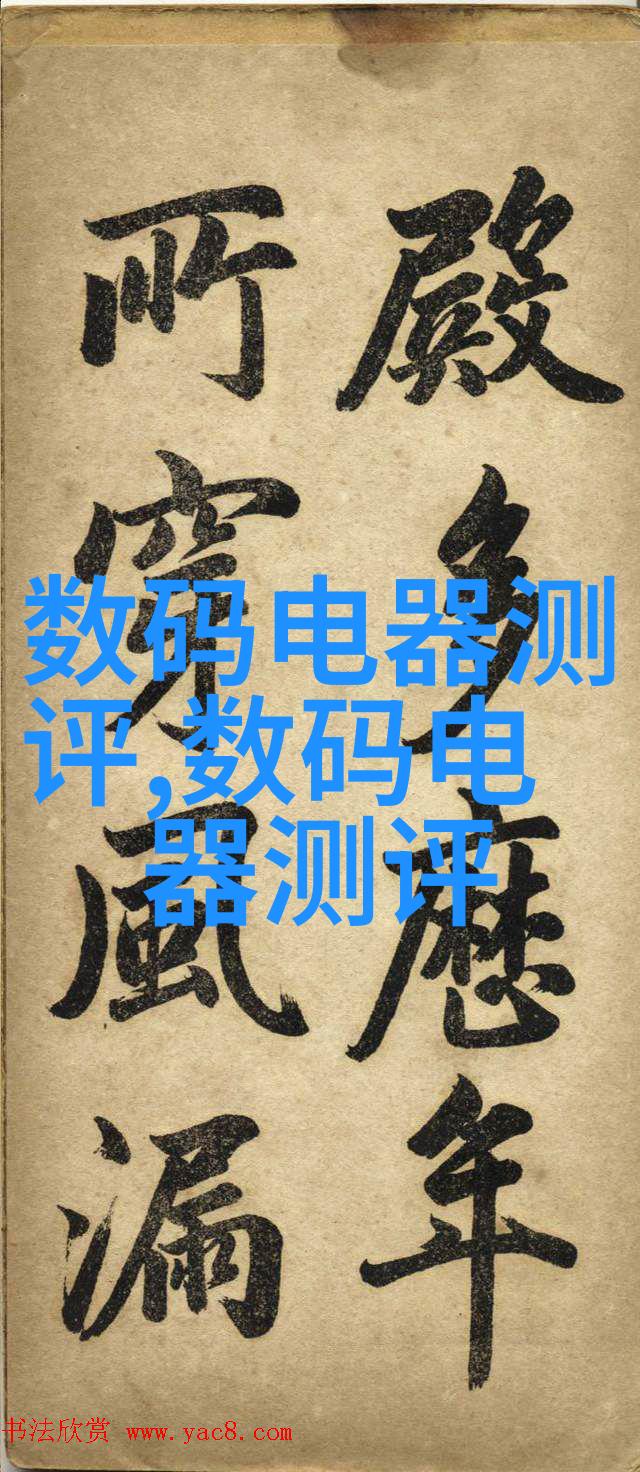 殿多歷年
所穿風漏
数码电器测
评,数码电
器测评
书法欣赏 www.yac8.com